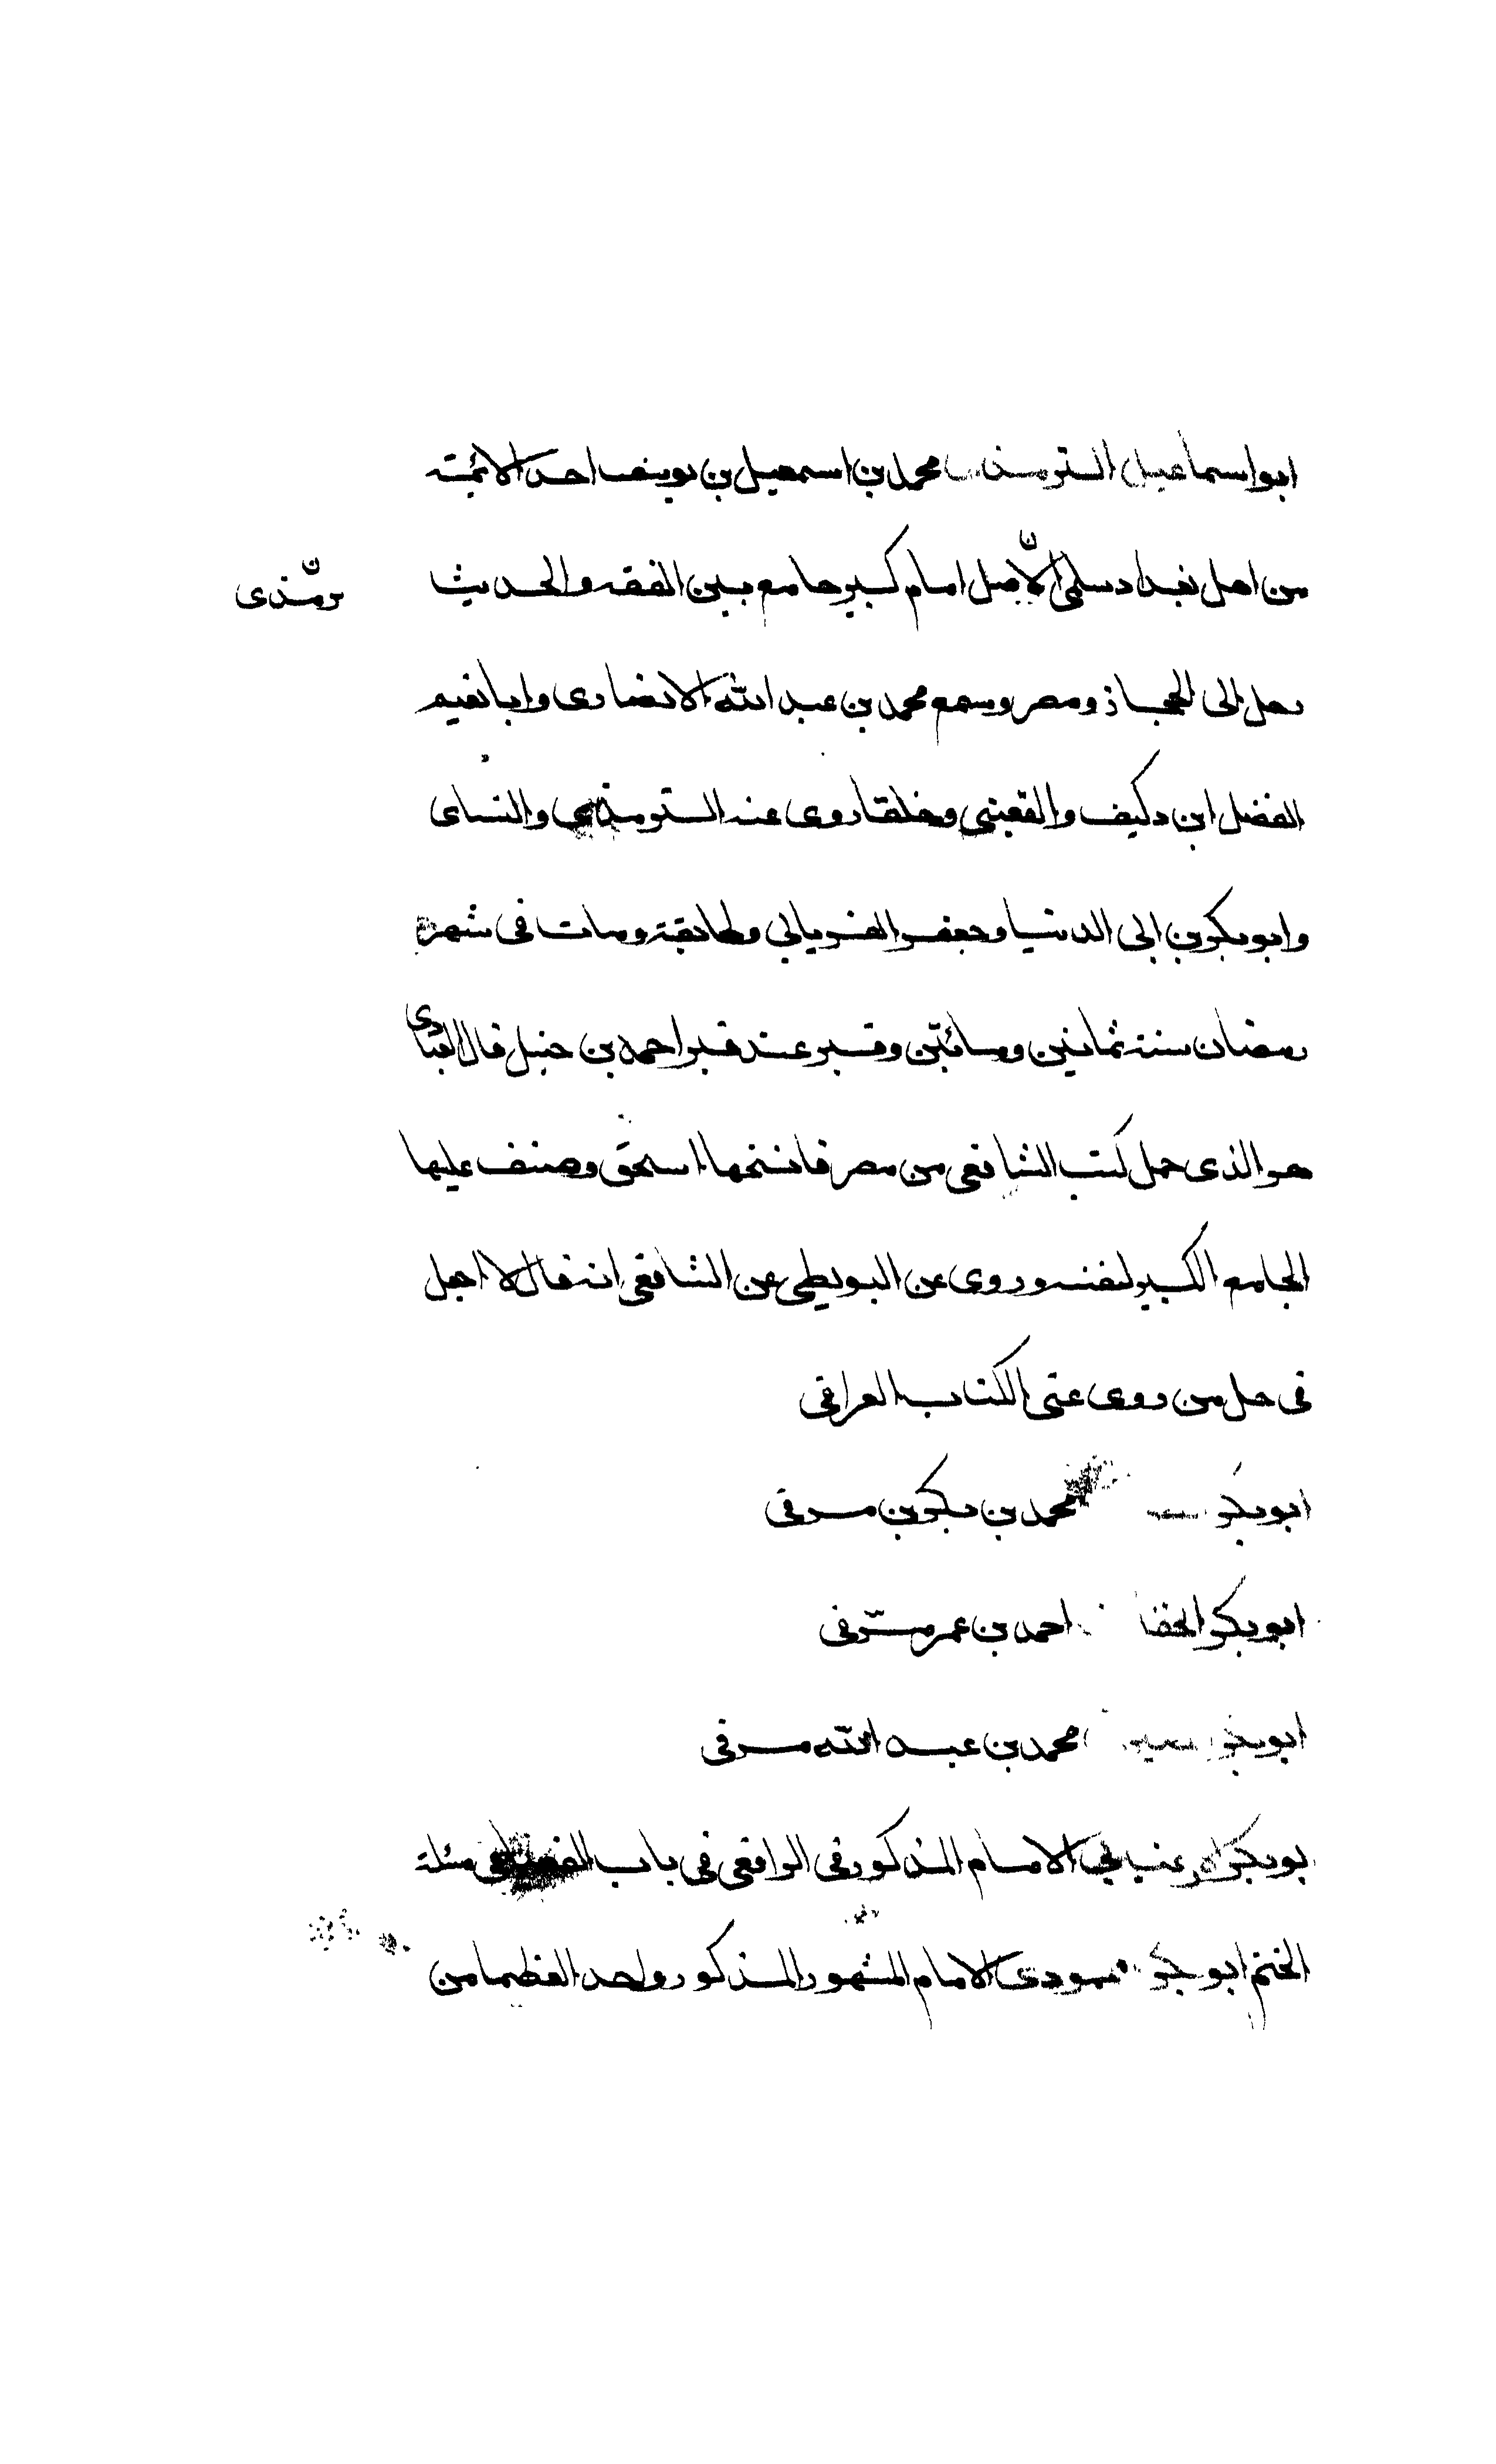 ابو اسماعيل الترمذى محمد بن اسمعيل بن يوسف احد الائمة
من اهل بغداد سلمى الاصل امام كبير جامع بين الفقه والحديث
ترمذى
رحل الى الحجاز ومصر وسمع محمد بن عبد الله الانصارى وابا نعيم
الفضل ابن دكيف والقعنبى وخلقا روى عنه الترمذى والنساى
وابو بكر بن ابى الدنيا وجعفر الفريابى وطائفة ومات فى شهر
رمضان سنة ثمانين ومائتين وقبر عند قبر احمد بن حنبل قال العبادى
هو الذى حمل كتب الشافعى من مصر فانتسخها اسحق وصنف عليها
الجامع الكبير لنفسه وروى عن البويطى عن الشافعى انه قال لا اجعل
فى حل من روى عنى الكتاب العراقى
ابو بكر محمد بن بكر بن مر فى
ابو بكر الخفا احمد بن عمر مر فى
ابو بكر محمد بن عبد الله مر فى
بو بكر الامام المذكور فى الرافعى فى باب مسئلة
الختم ابو بكر الامام المشهور المذكور واحد العظما من